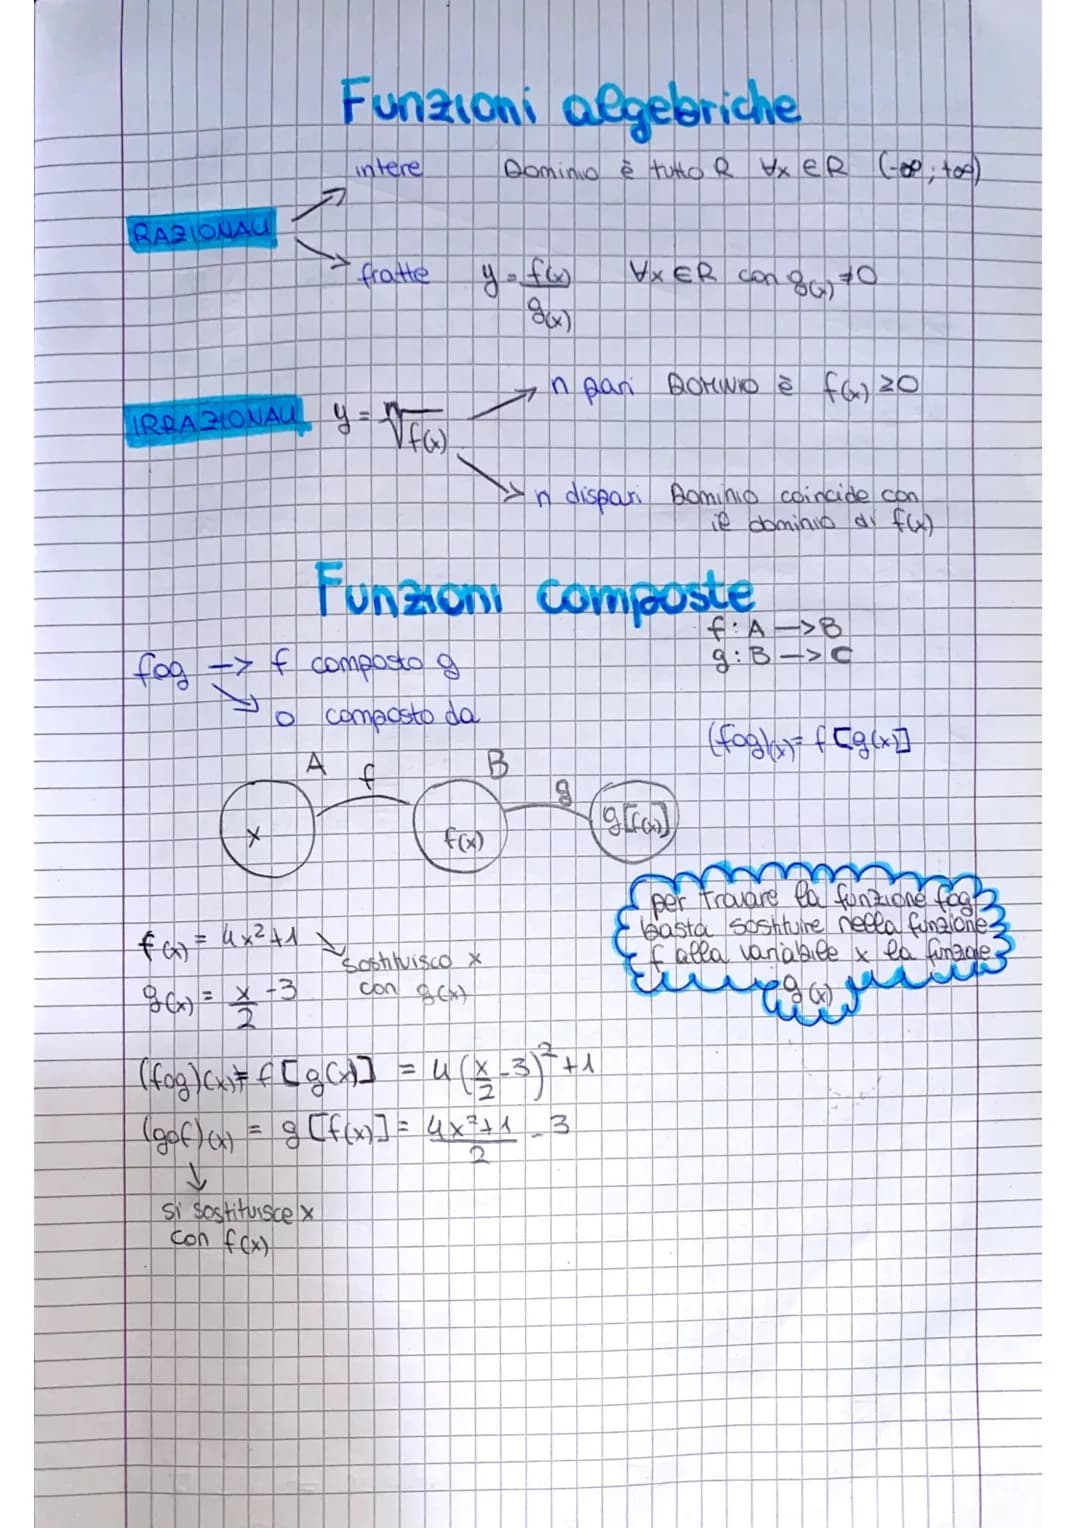 Funzioni algebriche
intere Dominio è tutto R ∀x ∈ R (-∞; +∞)
RAZIONALI
fratte y = f(x)/g(x) ∀x ∈ R con g(x) ≠ 0
n pari DOMINIO è f(x) ≥ 0
IRRAZIONALI y = ⁿ√f(x)
n dispari Dominio coincide con
il dominio di f(x)
Funzioni composte
f: A —> B
g: B —> C
fog —> f composto g
o composto da
(fog)(x) = f [g(x)]
A f B g
x f(x) g[f(x)]
per trovare la funzione fog
basta sostituire nella funzione
f alla variabile x la funzione
g(x)
f(x) = 4x²+1
sostituisco x
con g(x)
g(x) = x/2 - 3
(fog)(x) = f [g(x)] = 4(x/2 - 3)² + 1
(gof)(x) = g [f(x)] = 4x²+1/2 - 3
si sostituisce x
con f(x)